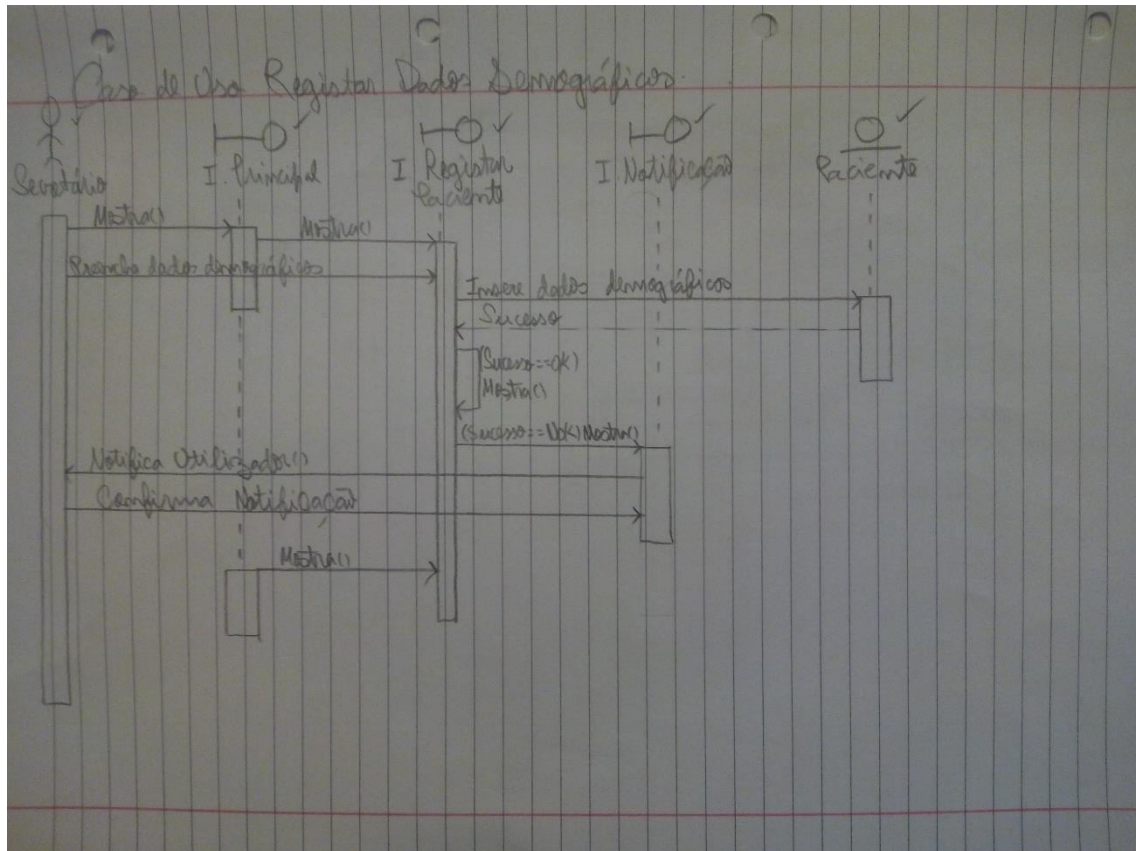 Caso de Uso Registar Dados Demográficos.
Secretário
I. Principal
I Registar
Paciente
I Notificação
Paciente
Mostra()
Mostra()
Preenche dados demográficos
Insere dados demográficos
Sucesso
(Sucesso==OK)
Mostra()
(Sucesso==NOK) Mostra()
Notifica Utilizador()
Confirma Notificação
Mostra()